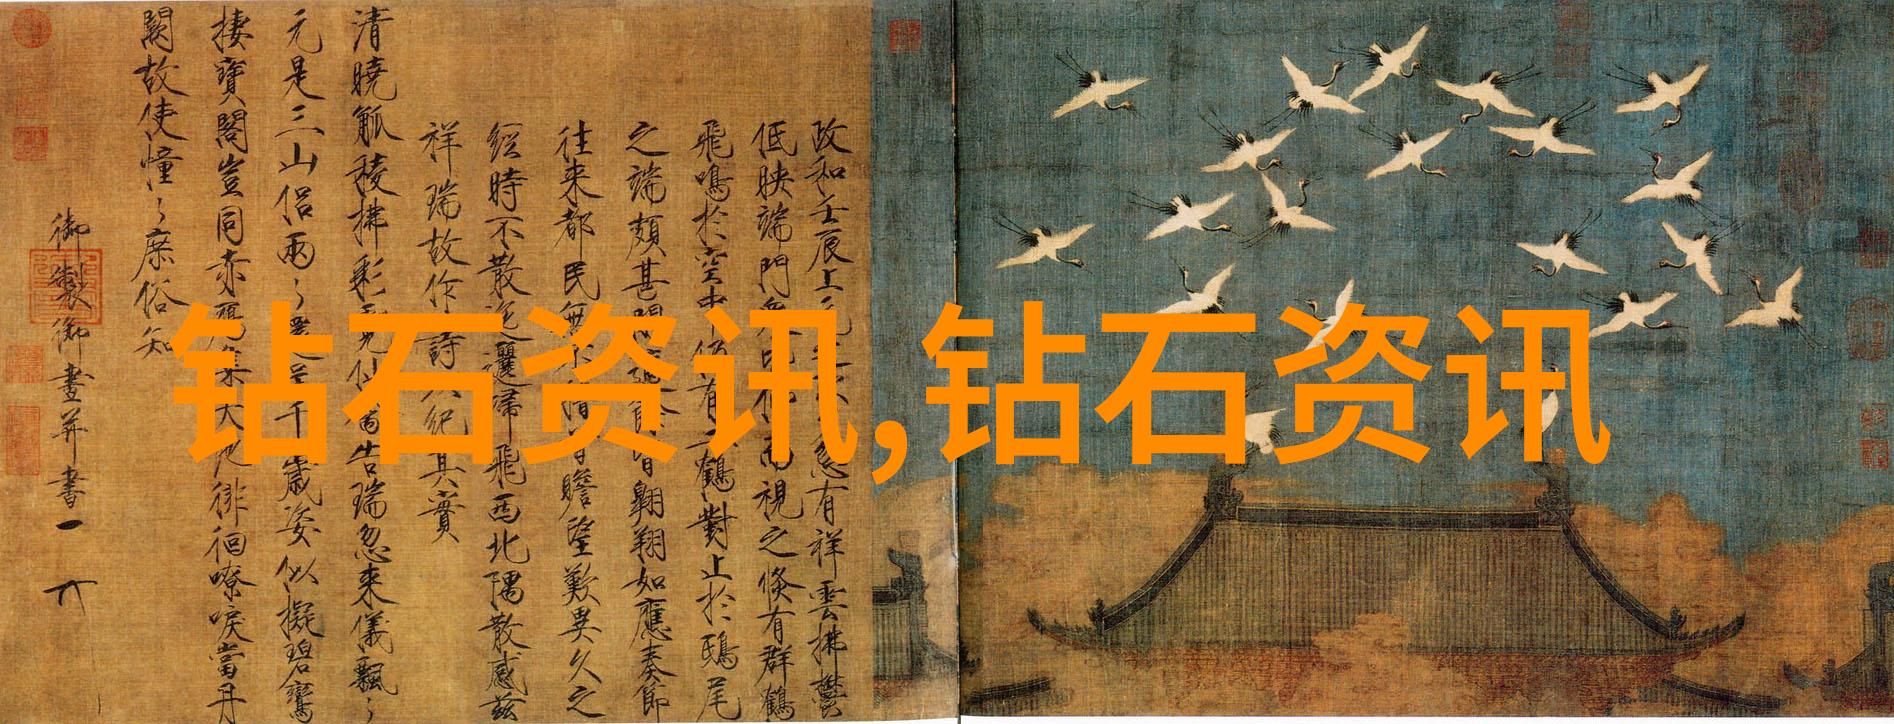 钻石资讯,钻石资讯
政和壬辰上元之次夕忽有祥雲拂鬱
低映端門衆皆仰而視之倏有群鶴
飛鳴於空中仍有二鶴對止於鴟尾
之端頗甚閒適餘皆翱翔如應奏節
往來都民無不稽首瞻望歎異久之
經時不散迤邐歸飛西北隅散感兹
祥瑞故作詩以紀其實
清曉觚稜拂彩霓仙禽告瑞忽來儀飄〻
元是三山侶兩〻還呈千歲姿似擬碧鸞
棲寶閣豈同赤雁集天池徘徊嘹唳當丹
闕故使憧〻庶俗知
御製御畫并書